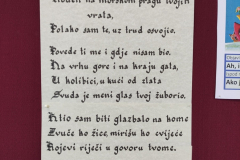 vrata,
Polako sam te, uz trud osvojio.
Povede ti me i gdje nisam bio.
Na vrhu gore i na kraju gala,
U kolibici, u kući od zlata
Svuda je meni glas tvoj žuborio.
Htio sam biti glazbalo na kome
Zvuče ko žice, mirišu ko cvijeće
Kojevi riječi u govoru tvome.
Ah, i
Ako j